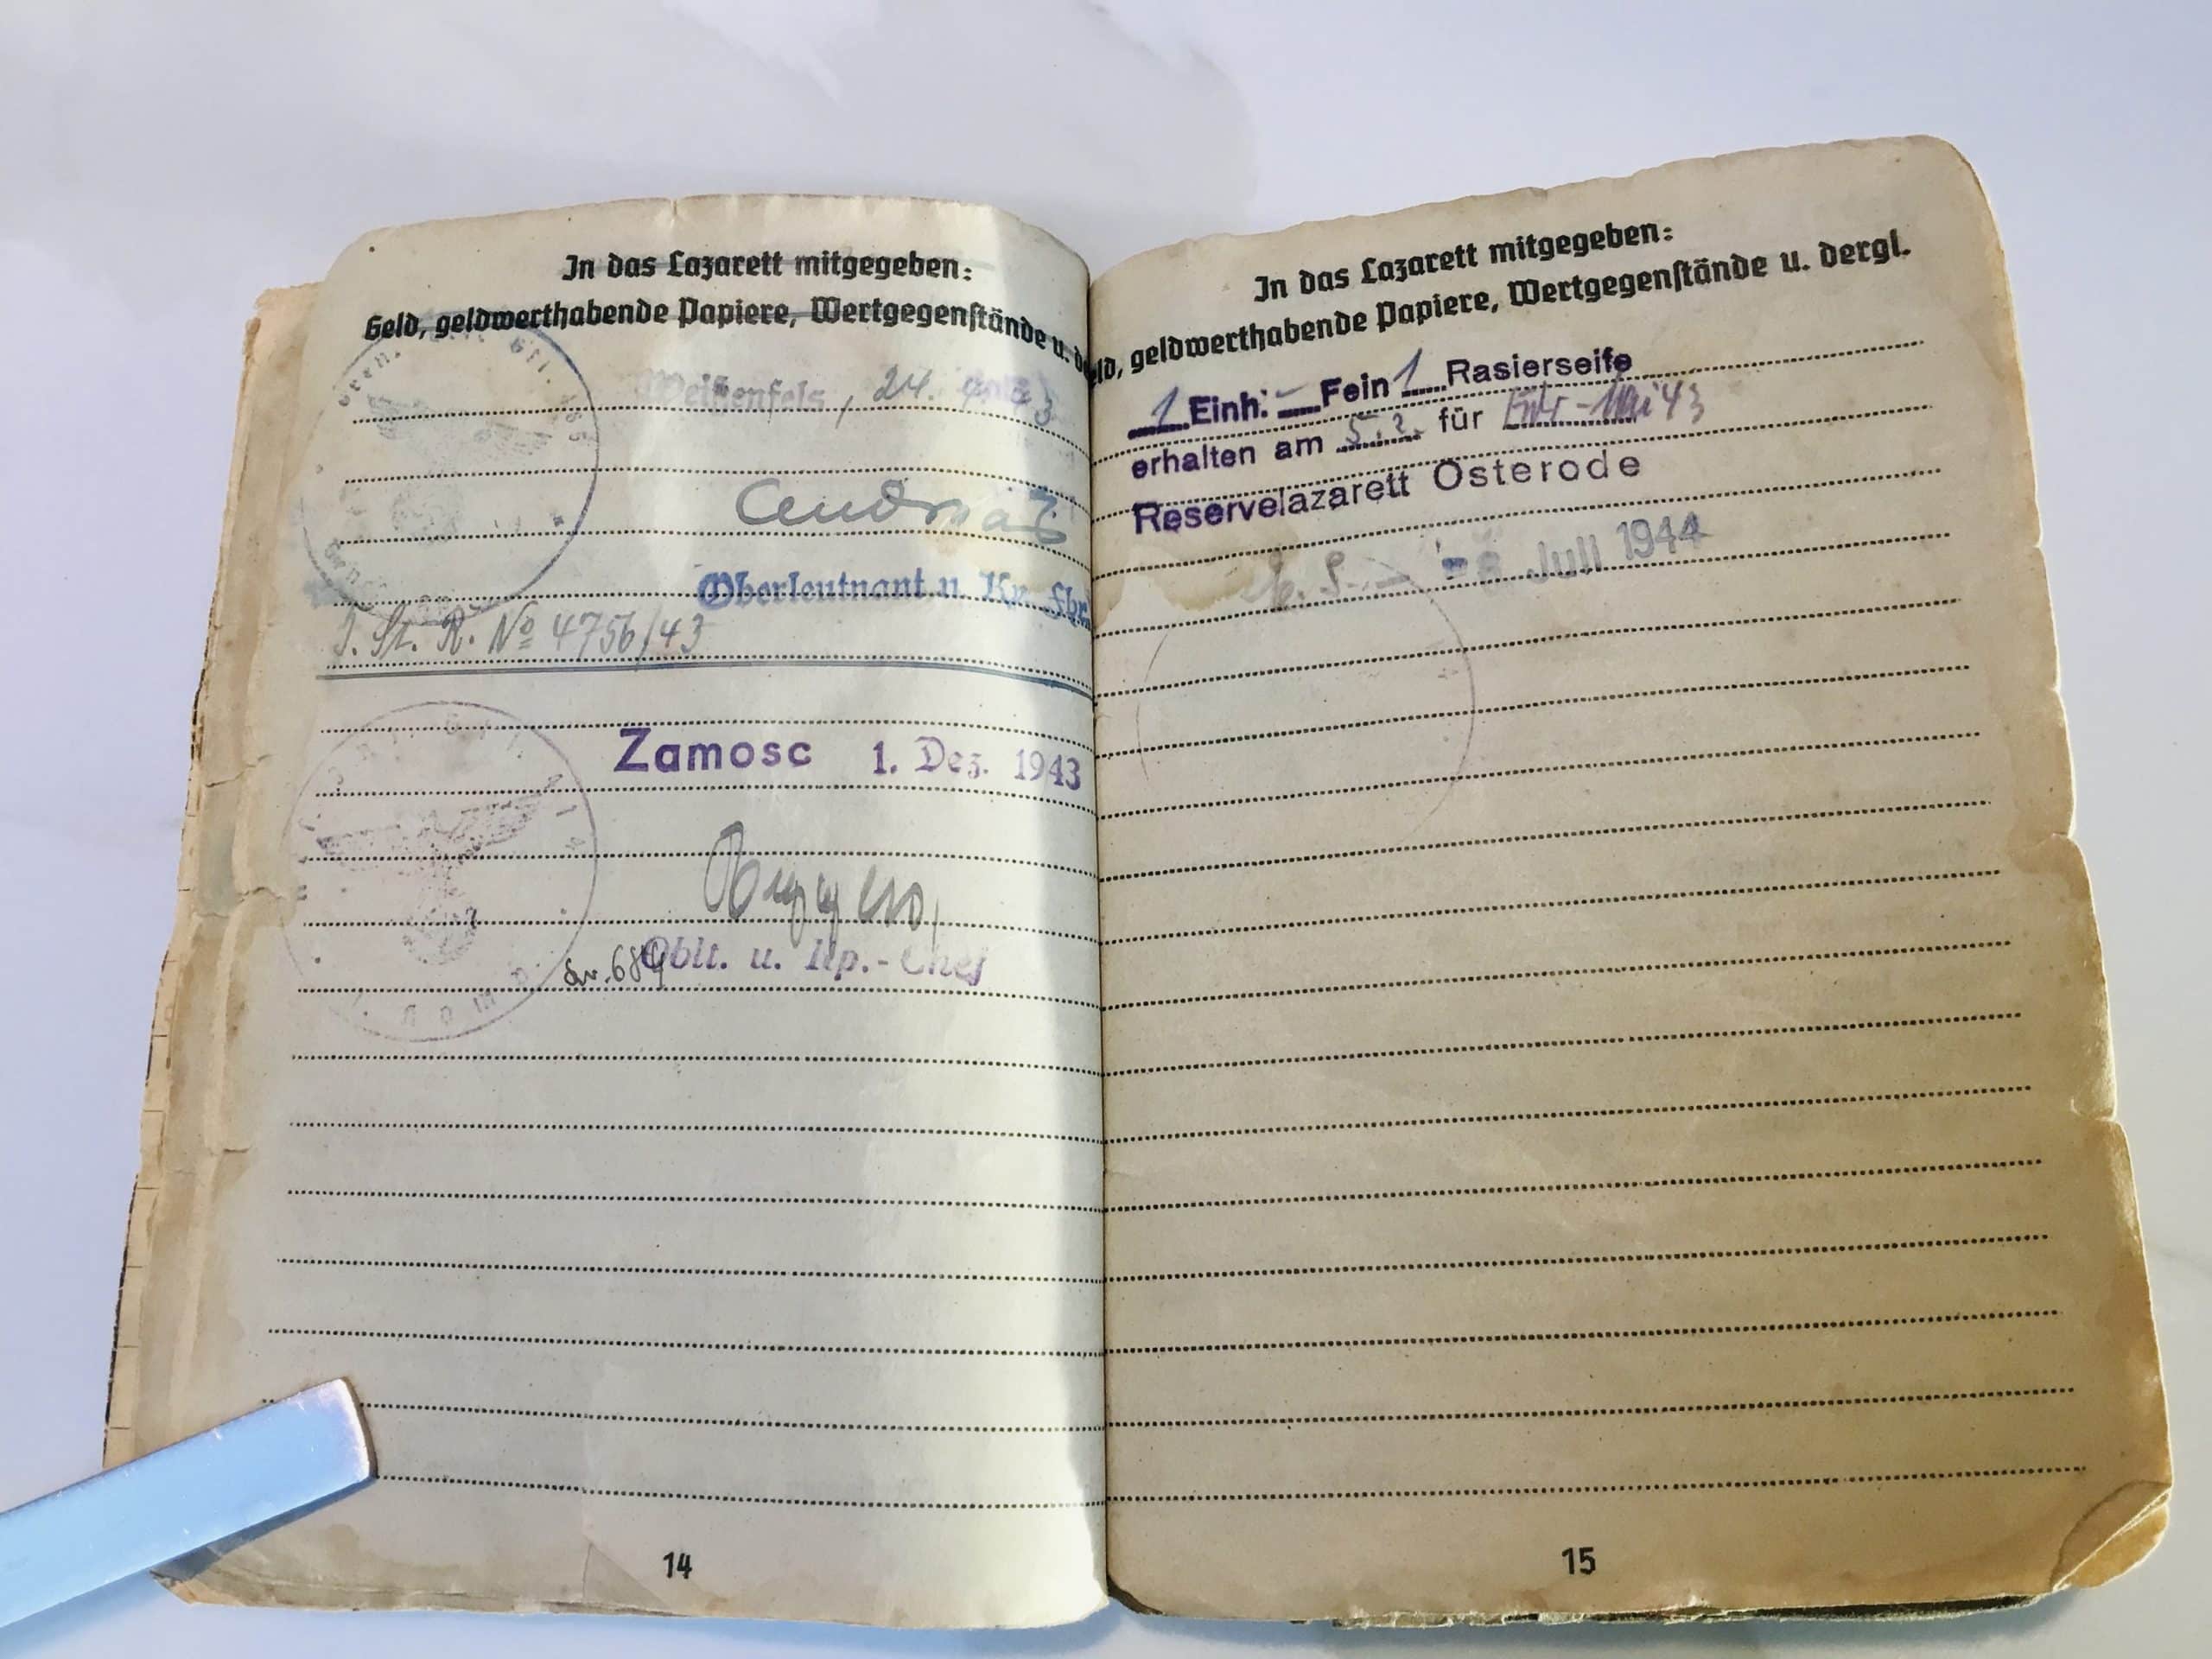 In das Lazarett mitgegeben:
Geld, geldwerthabende Papiere, Wertgegenstände u. d
Weißenfels, 24.
Oberleutnant u. Kp. Fhr.
J. St. R. No 4756/43
Zamosc 1. Dez. 1943
Oblt. u. Kp.-Chef
14
In das Lazarett mitgegeben:
eld, geldwerthabende Papiere, Wertgegenstände u. dergl.
1 Einh: - Fein 1 Rasierseife
erhalten am 5.2. für - Mai 43
Reservelazarett Osterode
- 8. Juli 1944
15